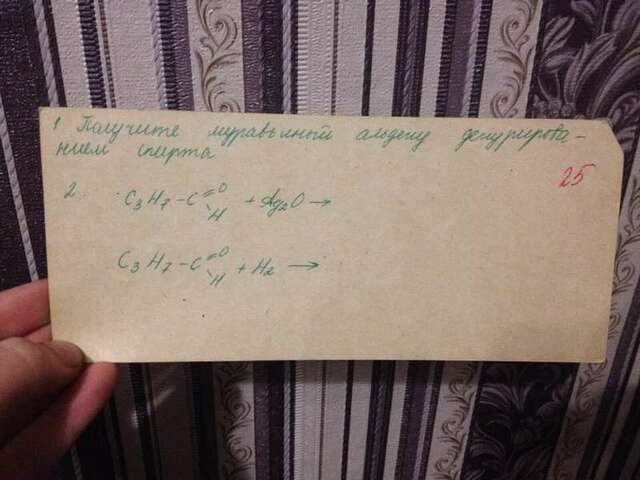 1 Получите муравьиный альдегид дегидрирова-
нием спирта
25
2 C3H7-C=O
H + Ag2O →
C3H7-C=O
H + H2 →